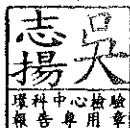 吳志揚
環科中心檢驗
報告專用章